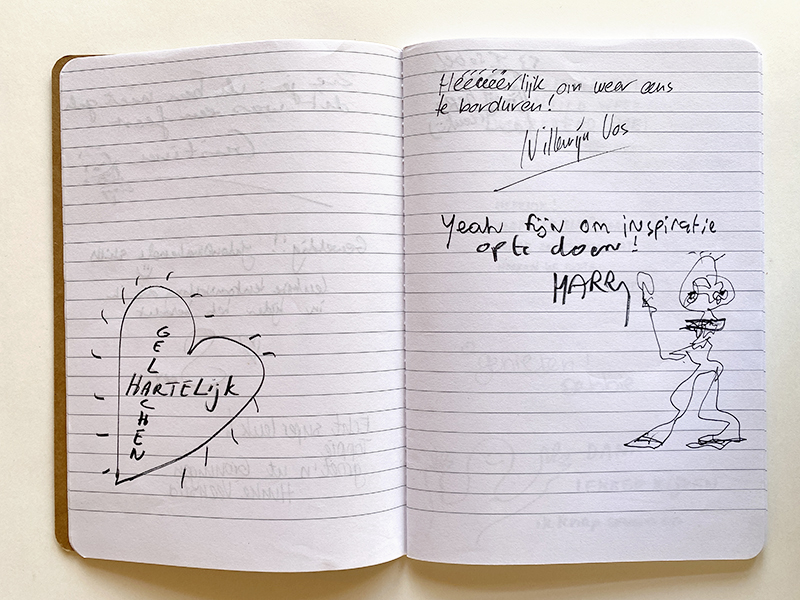 GELACHEN
HARTELijk
Héééëërlijk om weer eens
te borduren!
Willemijn Vos
Yeah fijn om inspiratie
op te doen!
MARRY